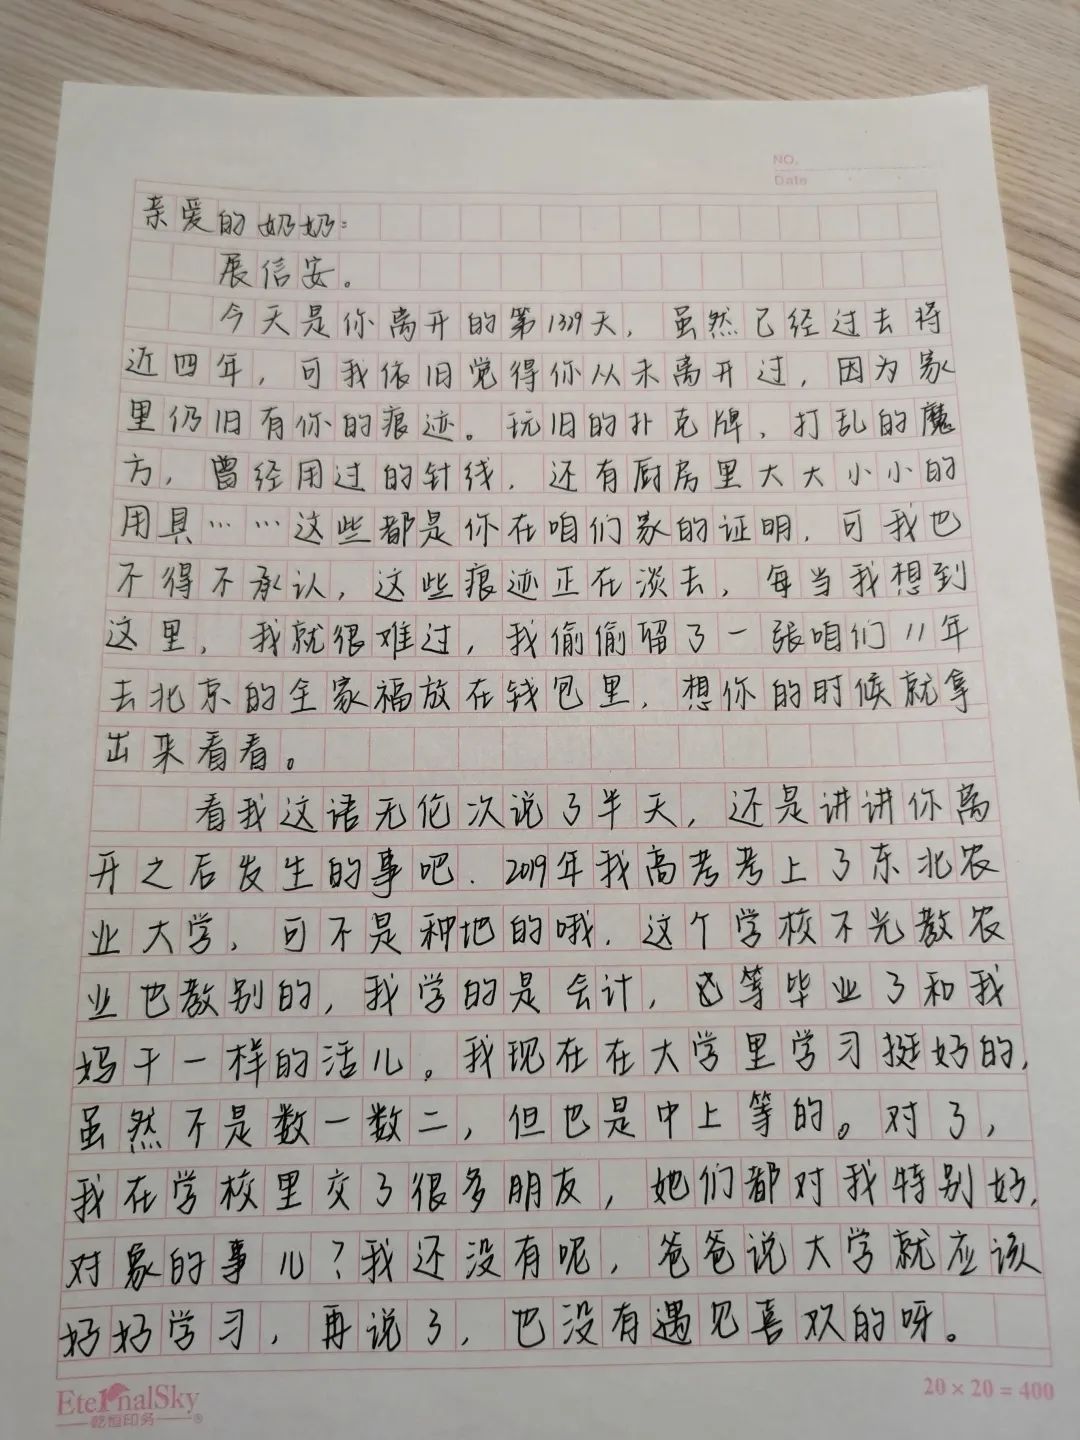 NO.
Date
亲爱的奶奶：
展信安。
今天是你离开的第1319天，虽然已经过去将
近四年，可我依旧觉得你从未离开过，因为家
里仍旧有你的痕迹。玩旧的扑克牌，打乱的魔
方，曾经用过的针线，还有厨房里大大小小的
用具……这些都是你在咱们家的证明，可我也
不得不承认，这些痕迹正在淡去，每当我想到
这里，我就很难过，我偷偷留了一张咱们11年
去北京的全家福放在钱包里，想你的时候就拿
出来看看。
看我这语无伦次说了半天，还是讲讲你离
开之后发生的事吧．2019年我高考考上了东北农
业大学，可不是种地的哦．这个学校不光教农
业也教别的，我学的是会计，等毕业了和我
妈干一样的活儿。我现在在大学里学习挺好的，
虽然不是数一数二，但也是中上等的。对了，
我在学校里交了很多朋友，她们都对我特别好，
对象的事儿？我还没有呢，爸爸说大学就应该
好好学习，再说了，也没有遇见喜欢的呀。
EternalSky
乾恒印务
®
20×20=400